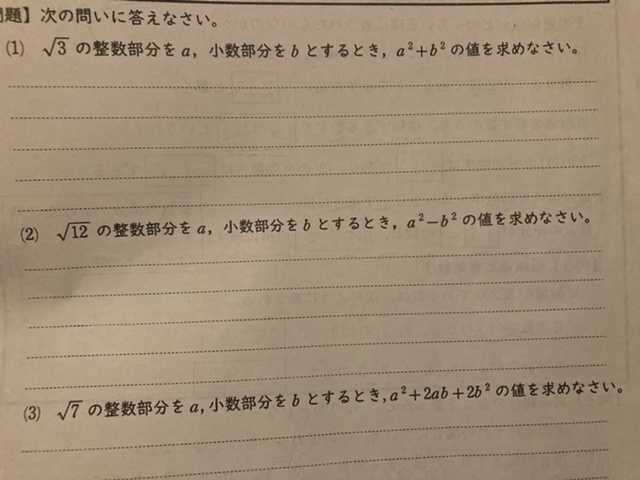 問題】次の問いに答えなさい。
(1) √3 の整数部分を a, 小数部分を b とするとき, a²+b² の値を求めなさい。
(2) √12 の整数部分を a, 小数部分を b とするとき, a²−b² の値を求めなさい。
(3) √7 の整数部分を a, 小数部分を b とするとき, a²+2ab+2b² の値を求めなさい。